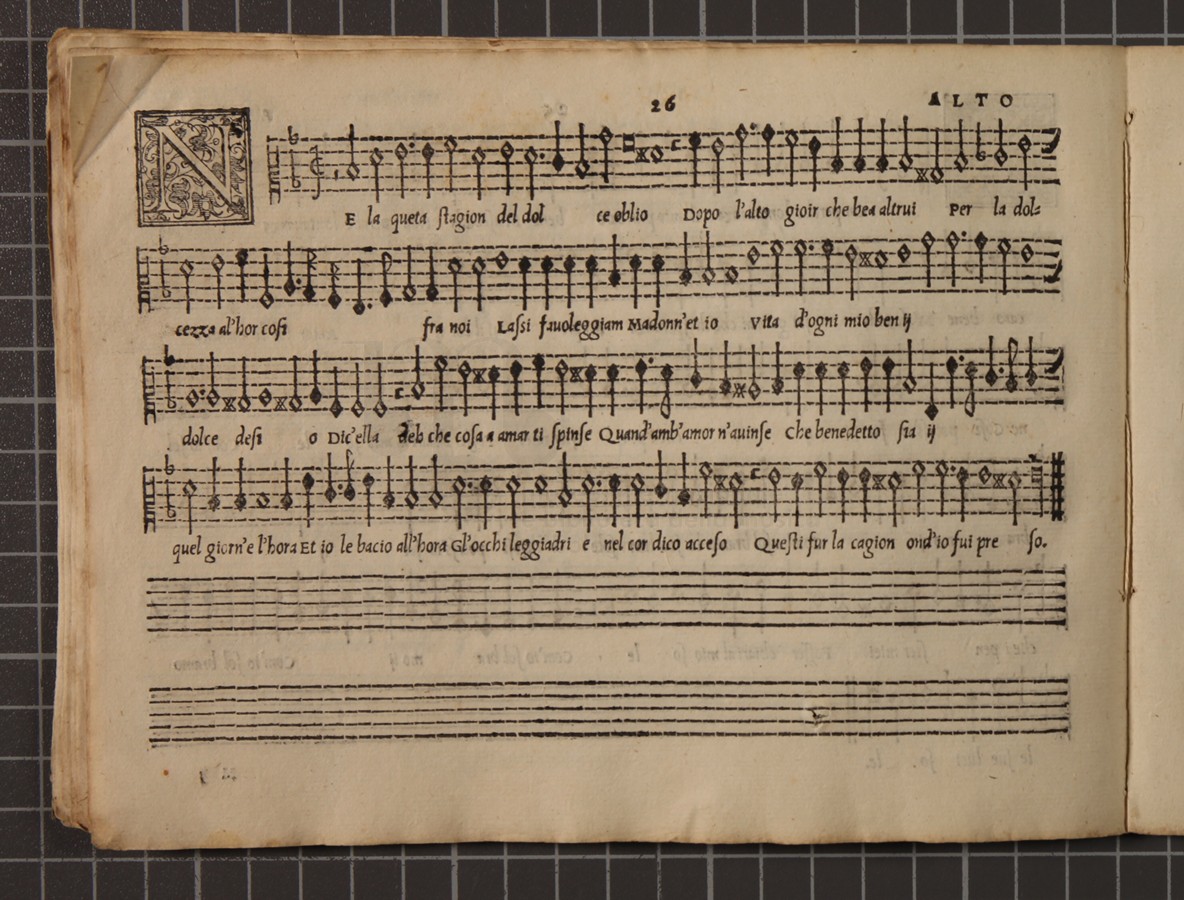 26 ALTO
NE la queta stagion del dol ce oblio Dopo l'alto gioir che bea altrui Per la dol=
cezza al'hor cosi fra noi Lassi fauoleggiam Madonn'et io Vita d'ogni mio ben ij
dolce desi o Dic'ella deh che cosa a amar ti spinse Quand'amb'amor n'auinse Che benedetto sia ij
quel giorn'e l'hora Et io le bacio all'hora Gl'occhi leggiadri e nel cor dico acceso Questi fur la cagion ond'io fui pre so.